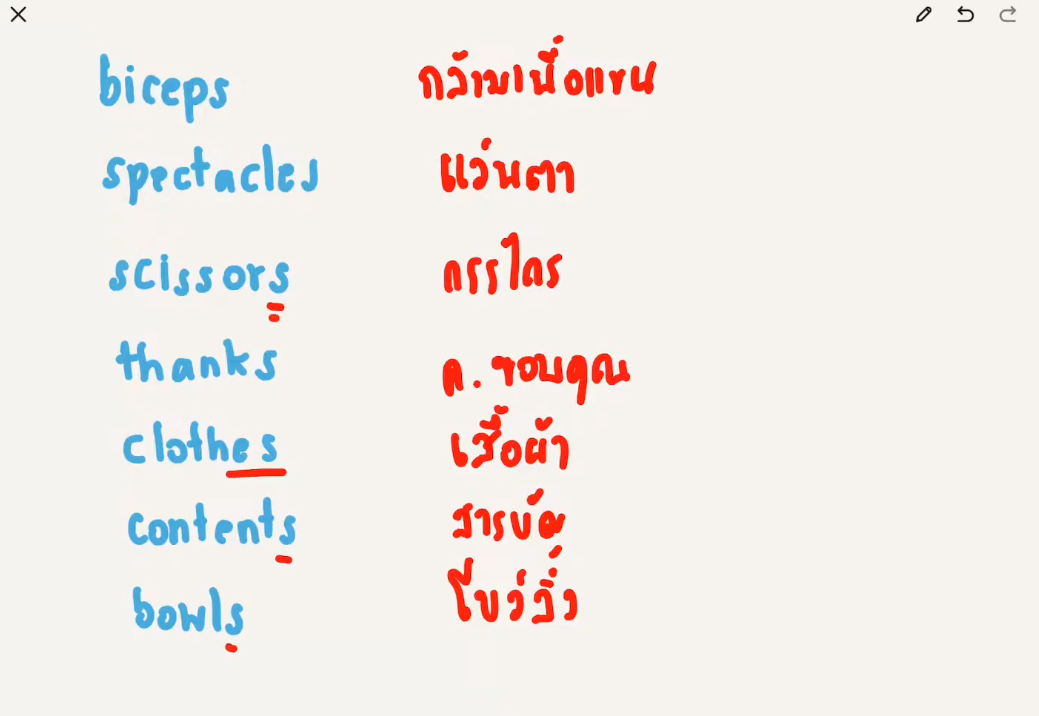 biceps กล้ามเนื้อแขน
spectacles แว่นตา
scissors กรรไกร
thanks ค. ขอบคุณ
clothes เสื้อผ้า
contents สารบัญ
bowls โบว์ลิ่ง